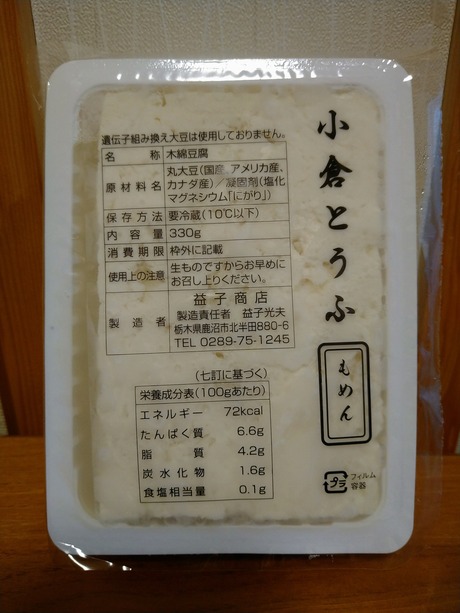 小倉とうふ
もめん
遺伝子組み換え大豆は使用しておりません。
名称 木綿豆腐
原材料名 丸大豆(国産、アメリカ産、
カナダ産)/凝固剤(塩化
マグネシウム「にがり」)
保存方法 要冷蔵(10℃以下)
内容量 330g
消費期限 枠外に記載
使用上の注意 生ものですからお早めに
お召し上りください。
製造者 益子商店
製造責任者 益子光夫
栃木県鹿沼市北半田880-6
TEL 0289-75-1245
(七訂に基づく)
栄養成分表(100gあたり)
エネルギー 72kcal
たんぱく質 6.6g
脂質 4.2g
炭水化物 1.6g
食塩相当量 0.1g
プラ
フィルム
容器